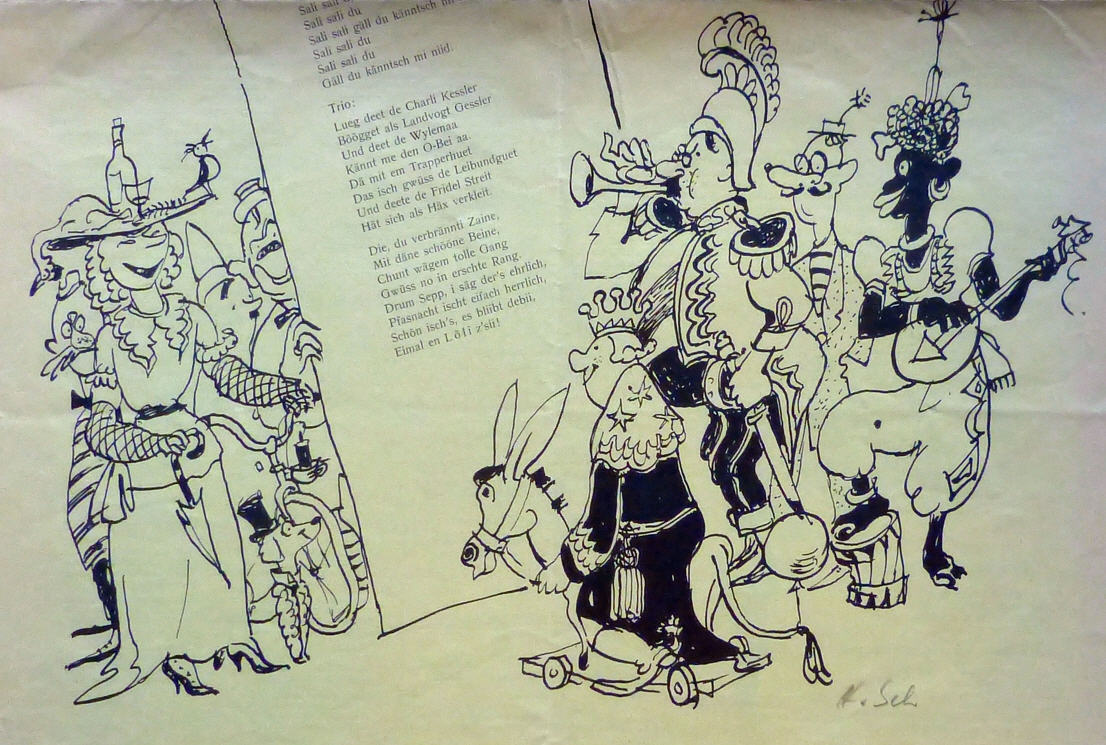 Sali sali
Sali sali du
Sali sali gäll du känntsch mi
Sali sali du
Sali sali du
Gäll du känntsch mi nüd.
Trio:
Lueg deet de Charli Kessler
Böögget als Landvogt Gessler
Und deet de Wylemaa
Kännt me den O-Bei aa.
Dä mit em Trapperhuet
Das isch gwüss de Leibundguet
Und deete de Fridel Streit
Hät sich als Häx verkleit.
Die, du verbrännti Zaine,
Mit däne schööne Beine,
Chunt wägem tolle Gang
Gwüss no in erschte Rang.
Drum Sepp, i säg der's ehrlich,
Pfasnacht ischt eifach herrlich,
Schön isch's, es bliibt debii,
Eimal en Löli z'sii!
H. Sch.